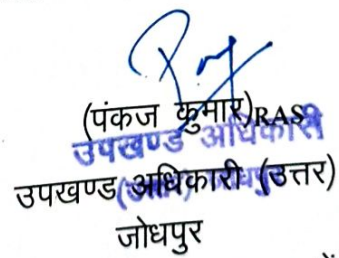 (पंकज कुमार)RAS
उपखण्ड अधिकारी
उपखण्ड अधिकारी (उत्तर)
जोधपुर